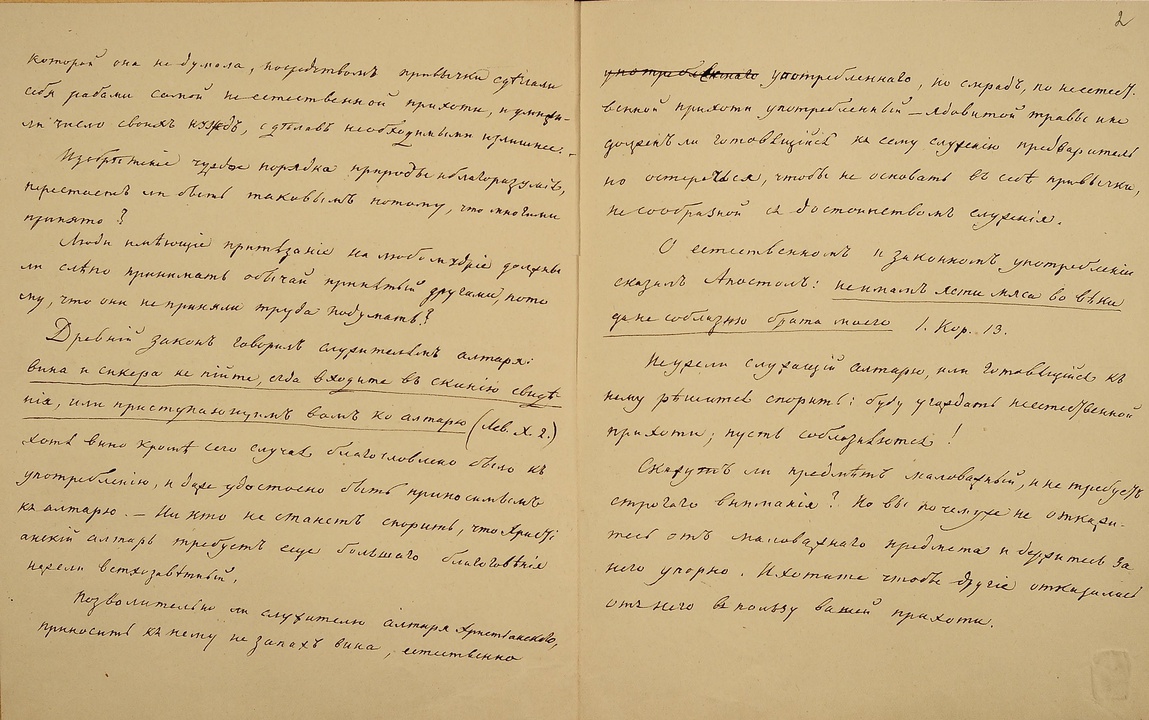 которой она не думала, посредствомъ привычки сдѣлали
себя рабами самой неестественной прихоти, и умножи-
ли число своихъ нуждъ, сдѣлавъ необходимыми излишнее. –
Изобрѣтеніе чуждое порядка природы и благоразумія,
перестаетъ ли быть таковымъ потому, что многими
принято?
Люди имѣющіе притязаніе на любомудріе должны
ли слѣпо принимать обычай принятый другими, пото
му, что они не приняли труда подумать?
Древній законъ говорилъ служителямъ алтаря:
вина и сикера не пійте, егда входите въ скинію свидѣ-
нія, или приступающимъ вамъ ко алтарю (Лев. X. 2.)
хотя вино кромѣ сего случая благословлено было къ
употребленію, и даже удостоено быть приносимымъ
къ алтарю. – Никто не станетъ спорить, что Христі
анскій алтарь требуетъ еще большаго благоговѣнія
нежели ветхозавѣтный.
Позволительно ли служителю алтаря Христіанскаго,
приносить къ нему не запахъ вина, естественно
2
употребленнаго употребленнаго, но смрадъ, по неестест-
венной прихоти употребленный – ядовитой травы или
долженъ ли готовящійся къ сему служенію предваритель
но остеречься, чтобы не основать въ себѣ привычки,
несообразной съ достоинствомъ служенія.
О естественномъ и законномъ употребленіи
сказалъ Апостолъ: не имамъ ясти мяса во вѣки
да не соблазню брата моего 1. Кор. 13.
Неужели служащій алтарю, или готовящійся къ
нему рѣшится спорить: буду угождать неестественной
прихоти; пусть соблазняются!
Скажутъ ли предмѣтъ маловажный, и не требуетъ
строгаго вниманія? Но вы почему же не откаже-
тесь отъ маловажнаго предмета и держитесь за
него упорно. И хотите чтобы другіе отказались
отъ него въ пользу вашей прихоти.